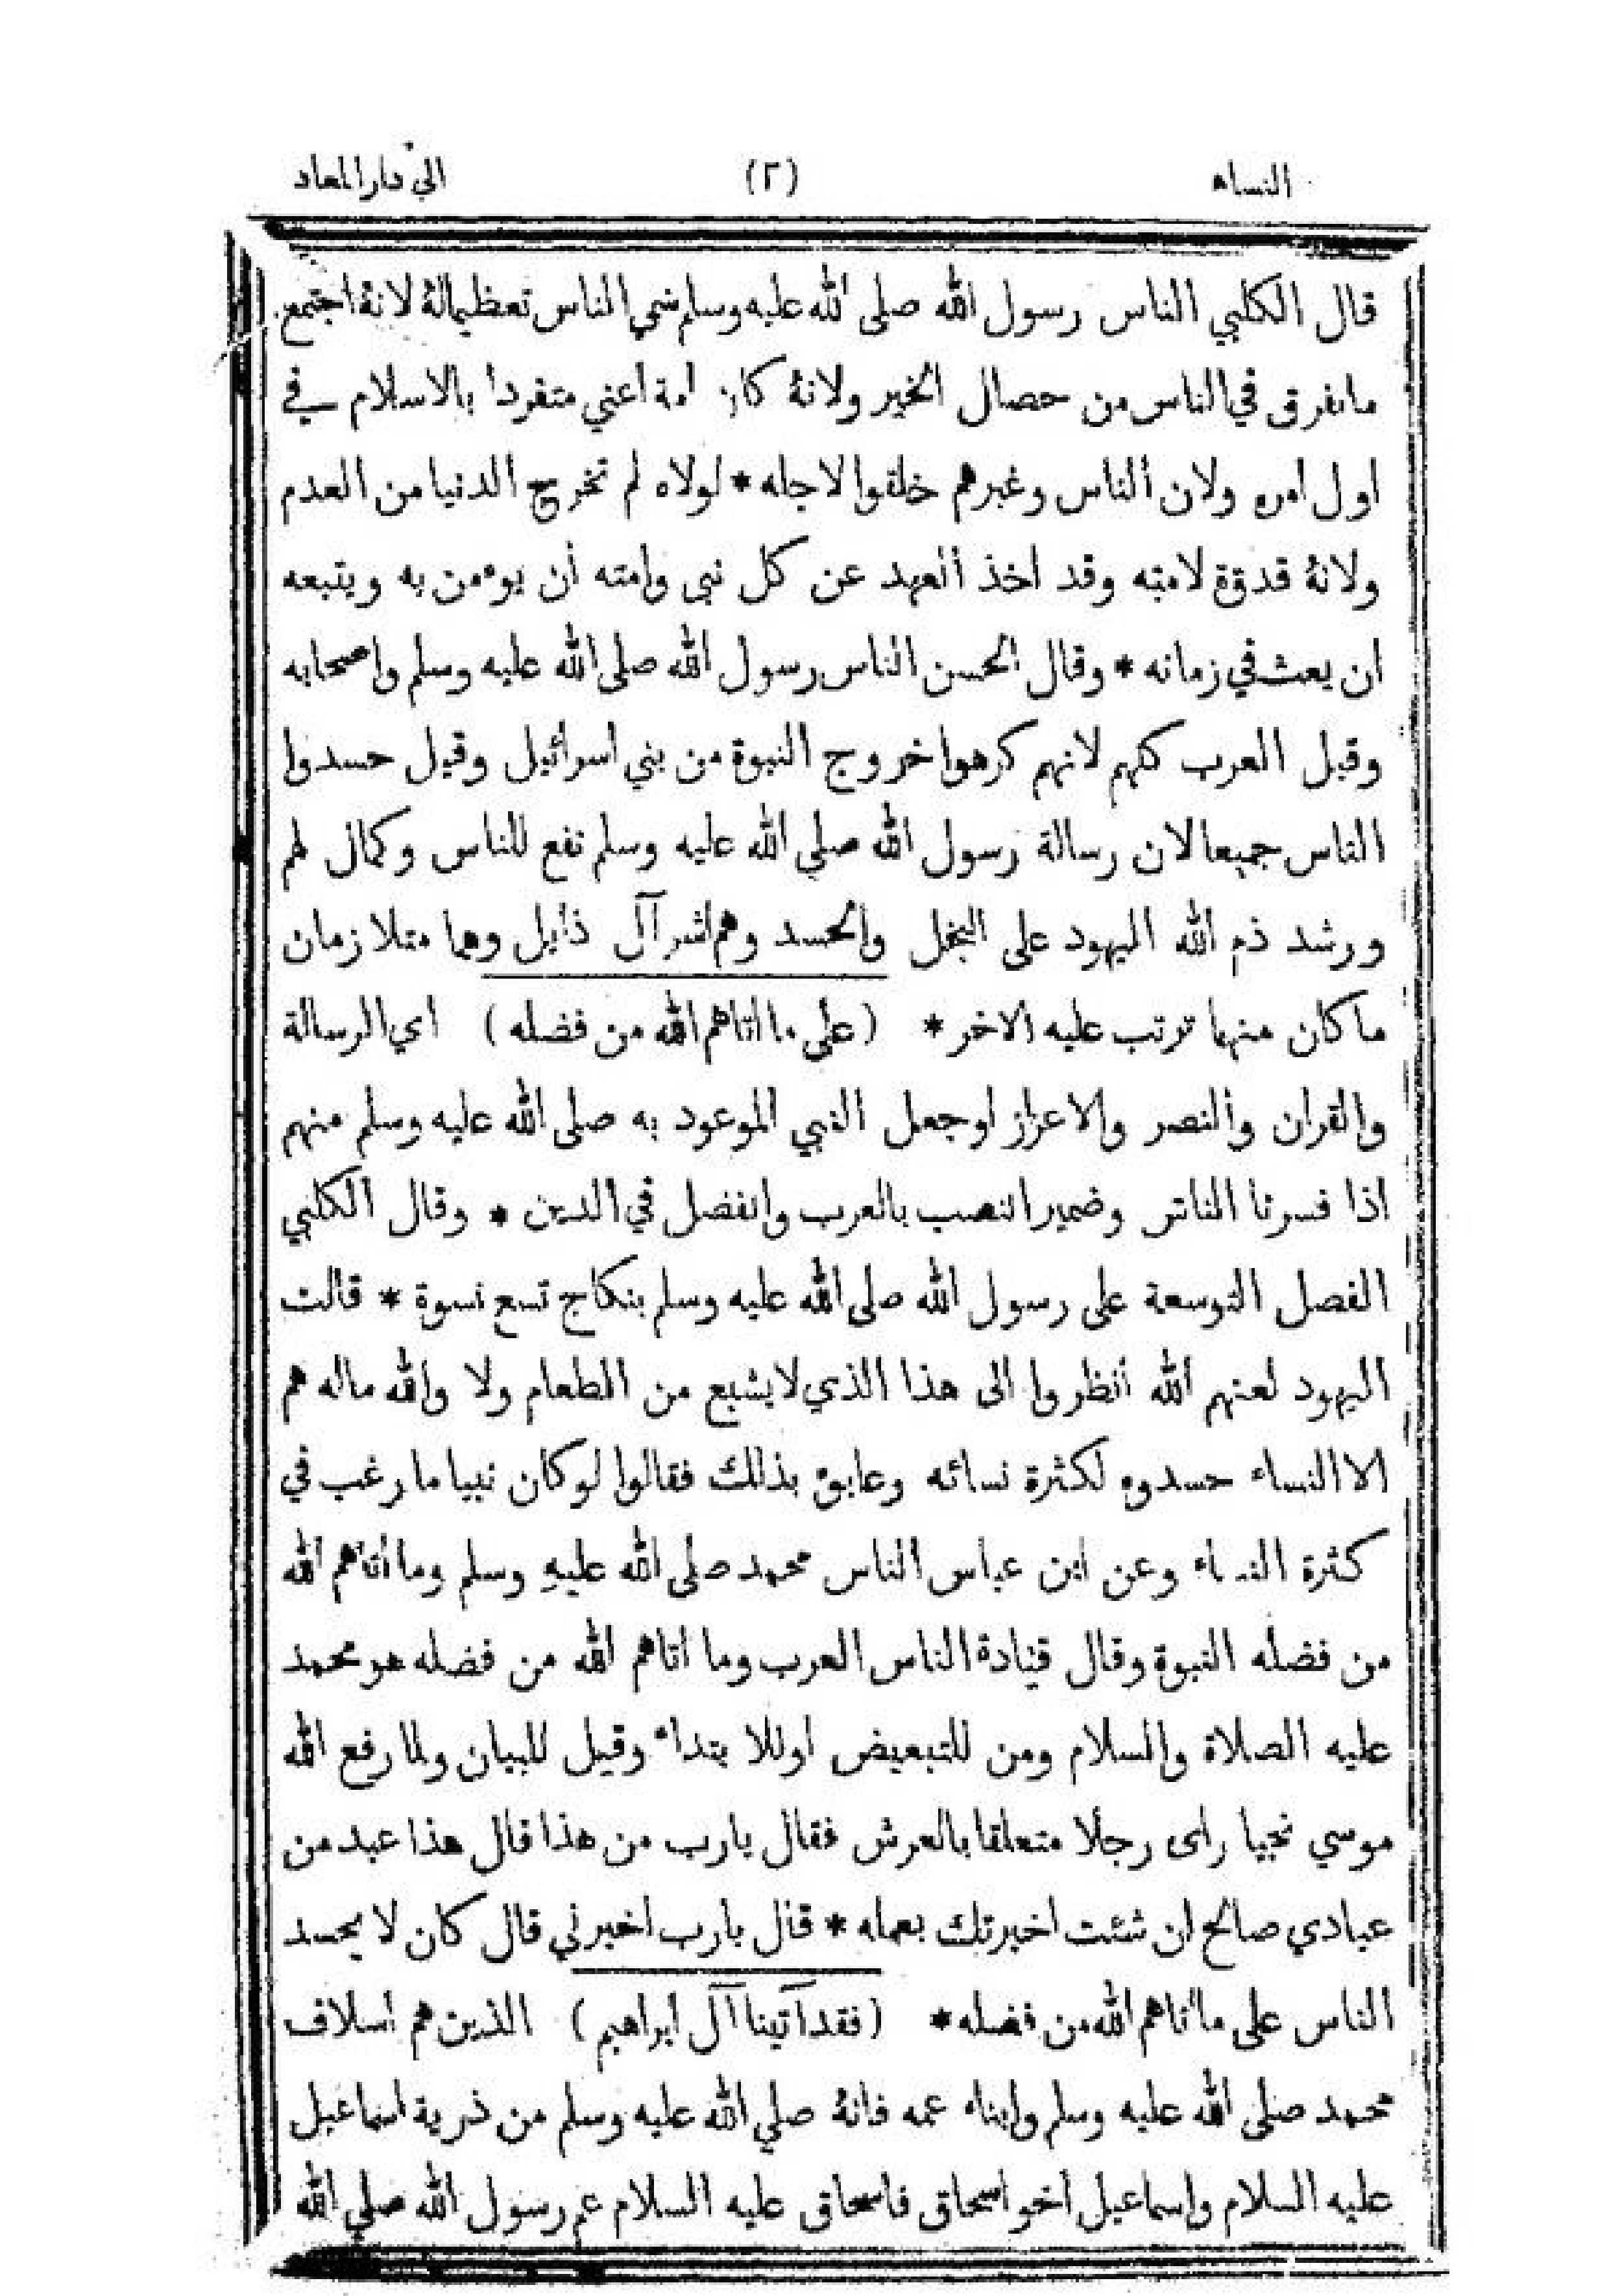 النساء (٢) الى دار المعاد
قال الكلبي الناس رسول الله صلى الله عليه وسلم سمي الناس تعظيما لهُ لانهُ اجتمع
ما تفرق في الناس من خصال الخير ولانهُ كان امة اعني متفردا بالاسلام في
اول امره ولان الناس وغيرهم خلقوا لاجله * لولاه لم تخرج الدنيا من العدم
ولانهُ قدوة لامته وقد اخذ العهد عن كل نبي وامته أن يوءمن به ويتبعه
ان بعث في زمانه * وقال الحسن الناس رسول الله صلى الله عليه وسلم واصحابه
وقيل العرب كلهم لانهم كرهوا خروج النبوة من بني اسرائيل وقيل حسدوا
الناس جميعا لان رسالة رسول الله صلى الله عليه وسلم نفع للناس وكمال لهم
ورشد ذم الله اليهود على البخل والحسد وهم اشر آل ذايل وهما متلازمان
ما كان منهما ترتب عليه الاخر * (على ما اتاهم الله من فضله) اي الرسالة
والقران والنصر والاعزاز او جعل النبي الموعود به صلى الله عليه وسلم منهم
اذا فسرنا الناس وضمير النصب بالعرب والفضل في الدين * وقال الكلبي
الفصل التوسعة على رسول الله صلى الله عليه وسلم بنكاح تسع نسوة * قالت
اليهود لعنهم الله أنظروا الى هذا الذي لا يشبع من الطعام ولا والله ماله هم
الا النساء حسدوه لكثرة نسائه وعابوه بذلك فقالوا لو كان نبيا ما رغب في
كثرة النساء وعن ابن عباس الناس محمد صلى الله عليهِ وسلم وما أتاهم الله
من فضله النبوة وقال قتادة الناس العرب وما اتاهم الله من فضله هو محمد
عليه الصلاة والسلام ومن للتبعيض او للابتداء وقيل للبيان ولما رفع الله
موسي نجيا راى رجلا متعلقا بالعرش فقال يارب من هذا قال هذا عبد من
عبادي صالح ان شئت اخبرتك بعمله * قال يارب اخبرني قال كان لا يحسد
الناس على ما اتاهم الله من فضله * (فقد آتينا آل ابراهيم) الذين هم اسلاف
محمد صلى الله عليه وسلم وابناء عمه فانهُ صلي الله عليه وسلم من ذرية اسماعيل
عليه السلام واسماعيل أخو اسحاق فاسحاق عليه السلام عم رسول الله صلي الله